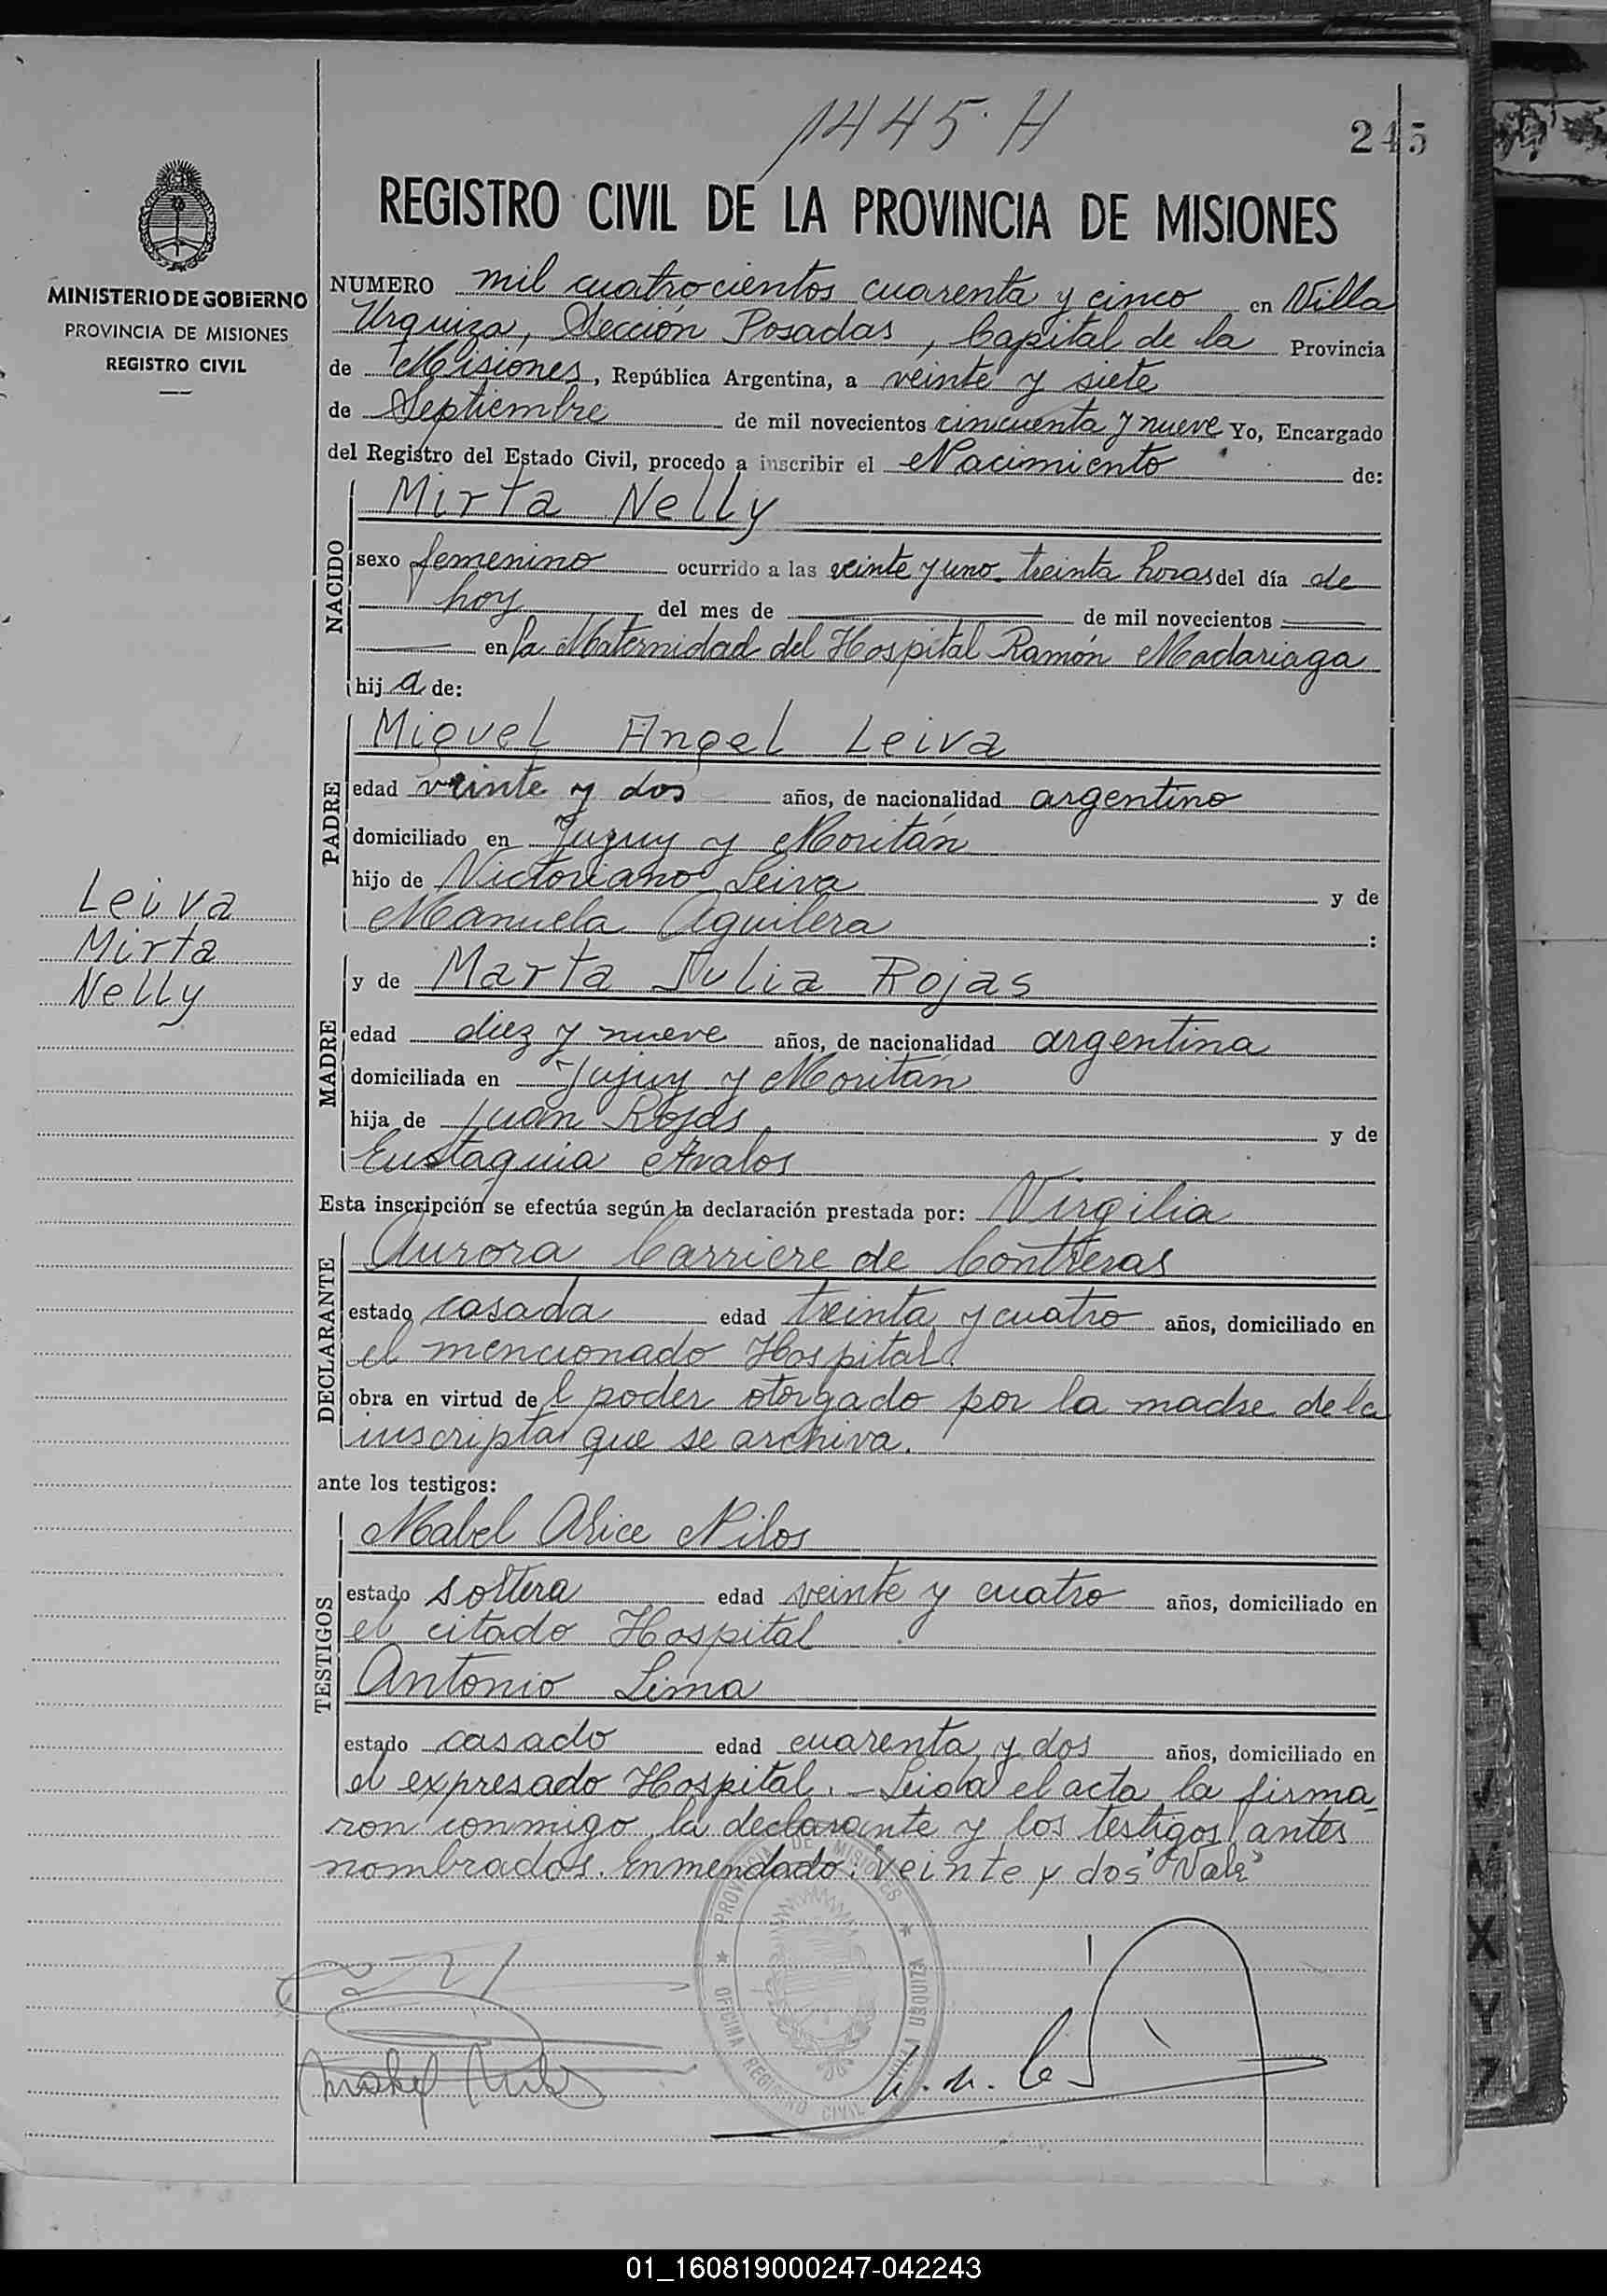 1445 H
245
REGISTRO CIVIL DE LA PROVINCIA DE MISIONES
MINISTERIO DE GOBIERNO
PROVINCIA DE MISIONES
REGISTRO CIVIL
NUMERO mil cuatrocientos cuarenta y cinco en Villa
Urquiza, Sección Posadas, Capital de la Provincia
de Misiones, República Argentina, a veinte y siete
de Septiembre de mil novecientos cincuenta y nueve Yo, Encargado
del Registro del Estado Civil, procedo a inscribir el Nacimiento de:
NACIDO
Mirta Nelly
sexo femenino ocurrido a las veinte y uno treinta horas del día de
hoy del mes de de mil novecientos
en la Maternidad del Hospital Ramón Madariaga
hija de:
PADRE
Miguel Angel Leiva
edad veinte y dos años, de nacionalidad argentino
domiciliado en Jujuy y Moritán
hijo de Victoriano Leiva y de
Manuela Aguilera :
Leiva
Mirta
Nelly
MADRE
y de Marta Julia Rojas
edad diez y nueve años, de nacionalidad argentina
domiciliada en Jujuy y Moritán
hija de Juan Rojas y de
Eustaquia Avalos
Esta inscripción se efectúa según la declaración prestada por: Virgilia
DECLARANTE
Aurora Carriere de Contreras
estado casada edad treinta y cuatro años, domiciliado en
el mencionado Hospital.
obra en virtud del poder otorgado por la madre de la
inscripta que se archiva.
ante los testigos:
TESTIGOS
Mabel Alice Nilos
estado soltera edad veinte y cuatro años, domiciliado en
el citado Hospital
Antonio Lima
estado casado edad cuarenta y dos años, domiciliado en
el expresado Hospital. - Leida el acta la firma-
ron conmigo la declarante y los testigos antes
nombrados. Enmendado: "veinte y dos" Vale"
PROVINCIA DE MISIONES
OFICINA REGISTRO CIVIL VILLA URQUIZA
01_160819000247-042243